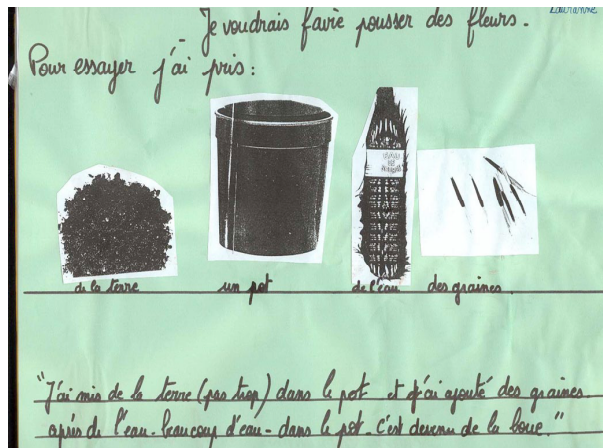 Lauranne
Je voudrais faire pousser des fleurs.
Pour essayer j'ai pris :
de la terre un pot de l'eau des graines
"J'ai mis de la terre (pas trop) dans le pot et j'ai ajouté des graines
après de l'eau - beaucoup d'eau - dans le pot. c'est devenu de la boue."